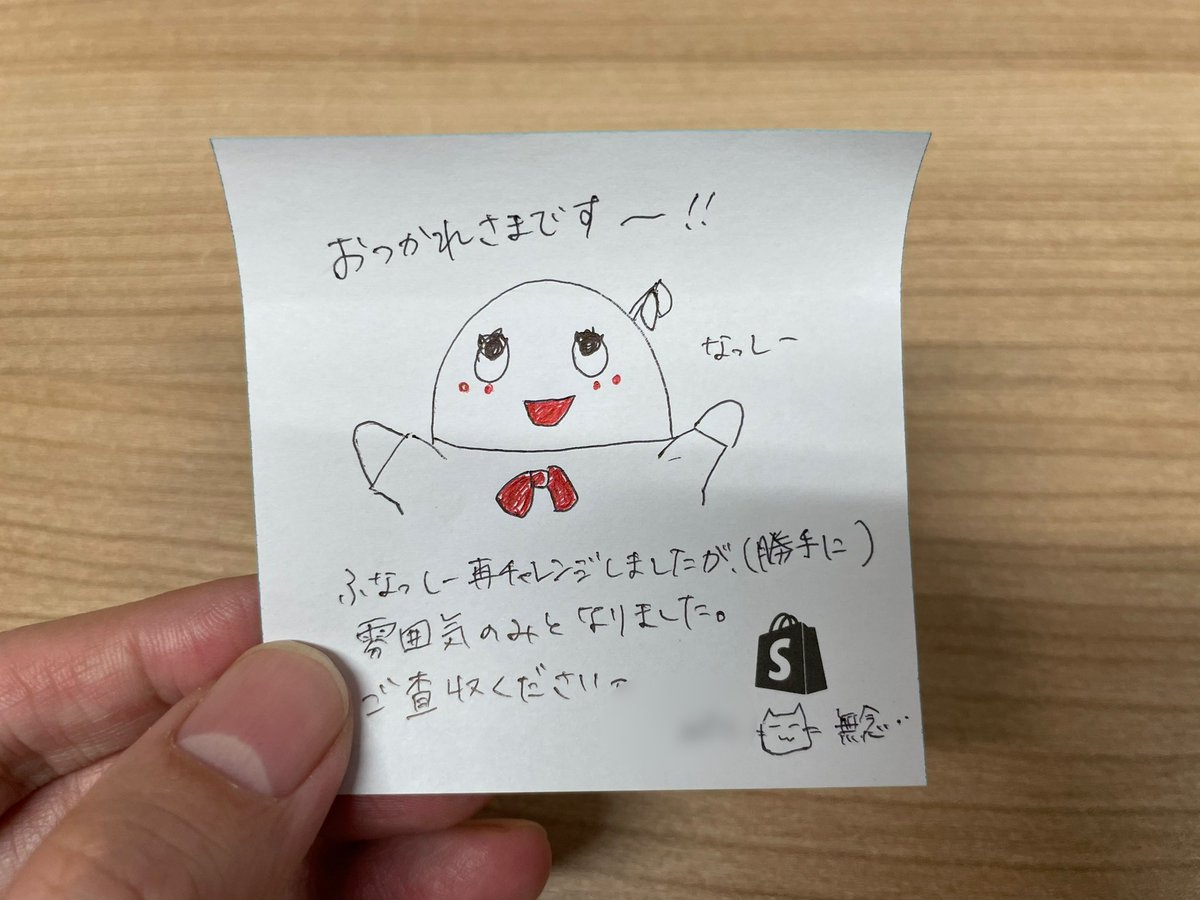 おつかれさまです〜!!
なっしー
ふなっしー再チャレンジしましたが、(勝手に)
雰囲気のみとなりました。
ご査収ください〜
S
無念‥